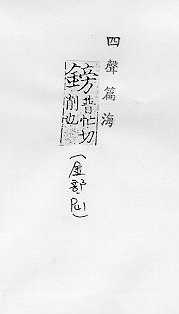 四聲篇海
鎊普忙切
削也
(金部